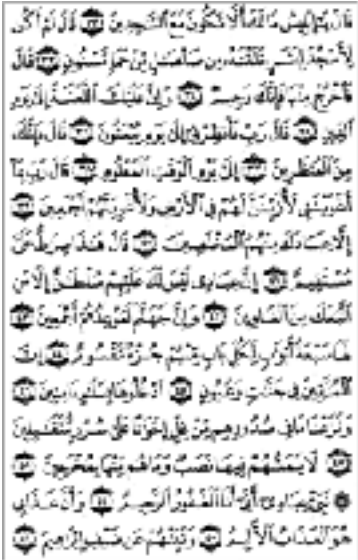 قَالَ يَٰٓإِبْلِيسُ مَا لَكَ أَلَّا تَكُونَ مَعَ ٱلسَّٰجِدِينَ ٣٢ قَالَ لَمْ أَكُن
لِّأَسْجُدَ لِبَشَرٍ خَلَقْتَهُۥ مِن صَلْصَٰلٍ مِّنْ حَمَإٍ مَّسْنُونٍ ٣٣ قَالَ
فَٱخْرُجْ مِنْهَا فَإِنَّكَ رَجِيمٌ ٣٤ وَإِنَّ عَلَيْكَ ٱللَّعْنَةَ إِلَىٰ يَوْمِ
ٱلدِّينِ ٣٥ قَالَ رَبِّ فَأَنظِرْنِىٓ إِلَىٰ يَوْمِ يُبْعَثُونَ ٣٦ قَالَ فَإِنَّكَ
مِنَ ٱلْمُنظَرِينَ ٣٧ إِلَىٰ يَوْمِ ٱلْوَقْتِ ٱلْمَعْلُومِ ٣٨ قَالَ رَبِّ بِمَآ
أَغْوَيْتَنِى لَأُزَيِّنَنَّ لَهُمْ فِى ٱلْأَرْضِ وَلَأُغْوِيَنَّهُمْ أَجْمَعِينَ ٣٩
إِلَّا عِبَادَكَ مِنْهُمُ ٱلْمُخْلَصِينَ ٤٠ قَالَ هَٰذَا صِرَٰطٌ عَلَىَّ
مُسْتَقِيمٌ ٤١ إِنَّ عِبَادِى لَيْسَ لَكَ عَلَيْهِمْ سُلْطَٰنٌ إِلَّا مَنِ
ٱتَّبَعَكَ مِنَ ٱلْغَاوِينَ ٤٢ وَإِنَّ جَهَنَّمَ لَمَوْعِدُهُمْ أَجْمَعِينَ ٤٣
لَهَا سَبْعَةُ أَبْوَٰبٍ لِّكُلِّ بَابٍ مِّنْهُمْ جُزْءٌ مَّقْسُومٌ ٤٤ إِنَّ
ٱلْمُتَّقِينَ فِى جَنَّٰتٍ وَعُيُونٍ ٤٥ ٱدْخُلُوهَا بِسَلَٰمٍ ءَامِنِينَ ٤٦
وَنَزَعْنَا مَا فِى صُدُورِهِم مِّنْ غِلٍّ إِخْوَٰنًا عَلَىٰ سُرُرٍ مُّتَقَٰبِلِينَ
٤٧ لَا يَمَسُّهُمْ فِيهَا نَصَبٌ وَمَا هُم مِّنْهَا بِمُخْرَجِينَ ٤٨
۞ نَبِّئْ عِبَادِىٓ أَنِّىٓ أَنَا ٱلْغَفُورُ ٱلرَّحِيمُ ٤٩ وَأَنَّ عَذَابِى
هُوَ ٱلْعَذَابُ ٱلْأَلِيمُ ٥٠ وَنَبِّئْهُمْ عَن ضَيْفِ إِبْرَٰهِيمَ ٥١